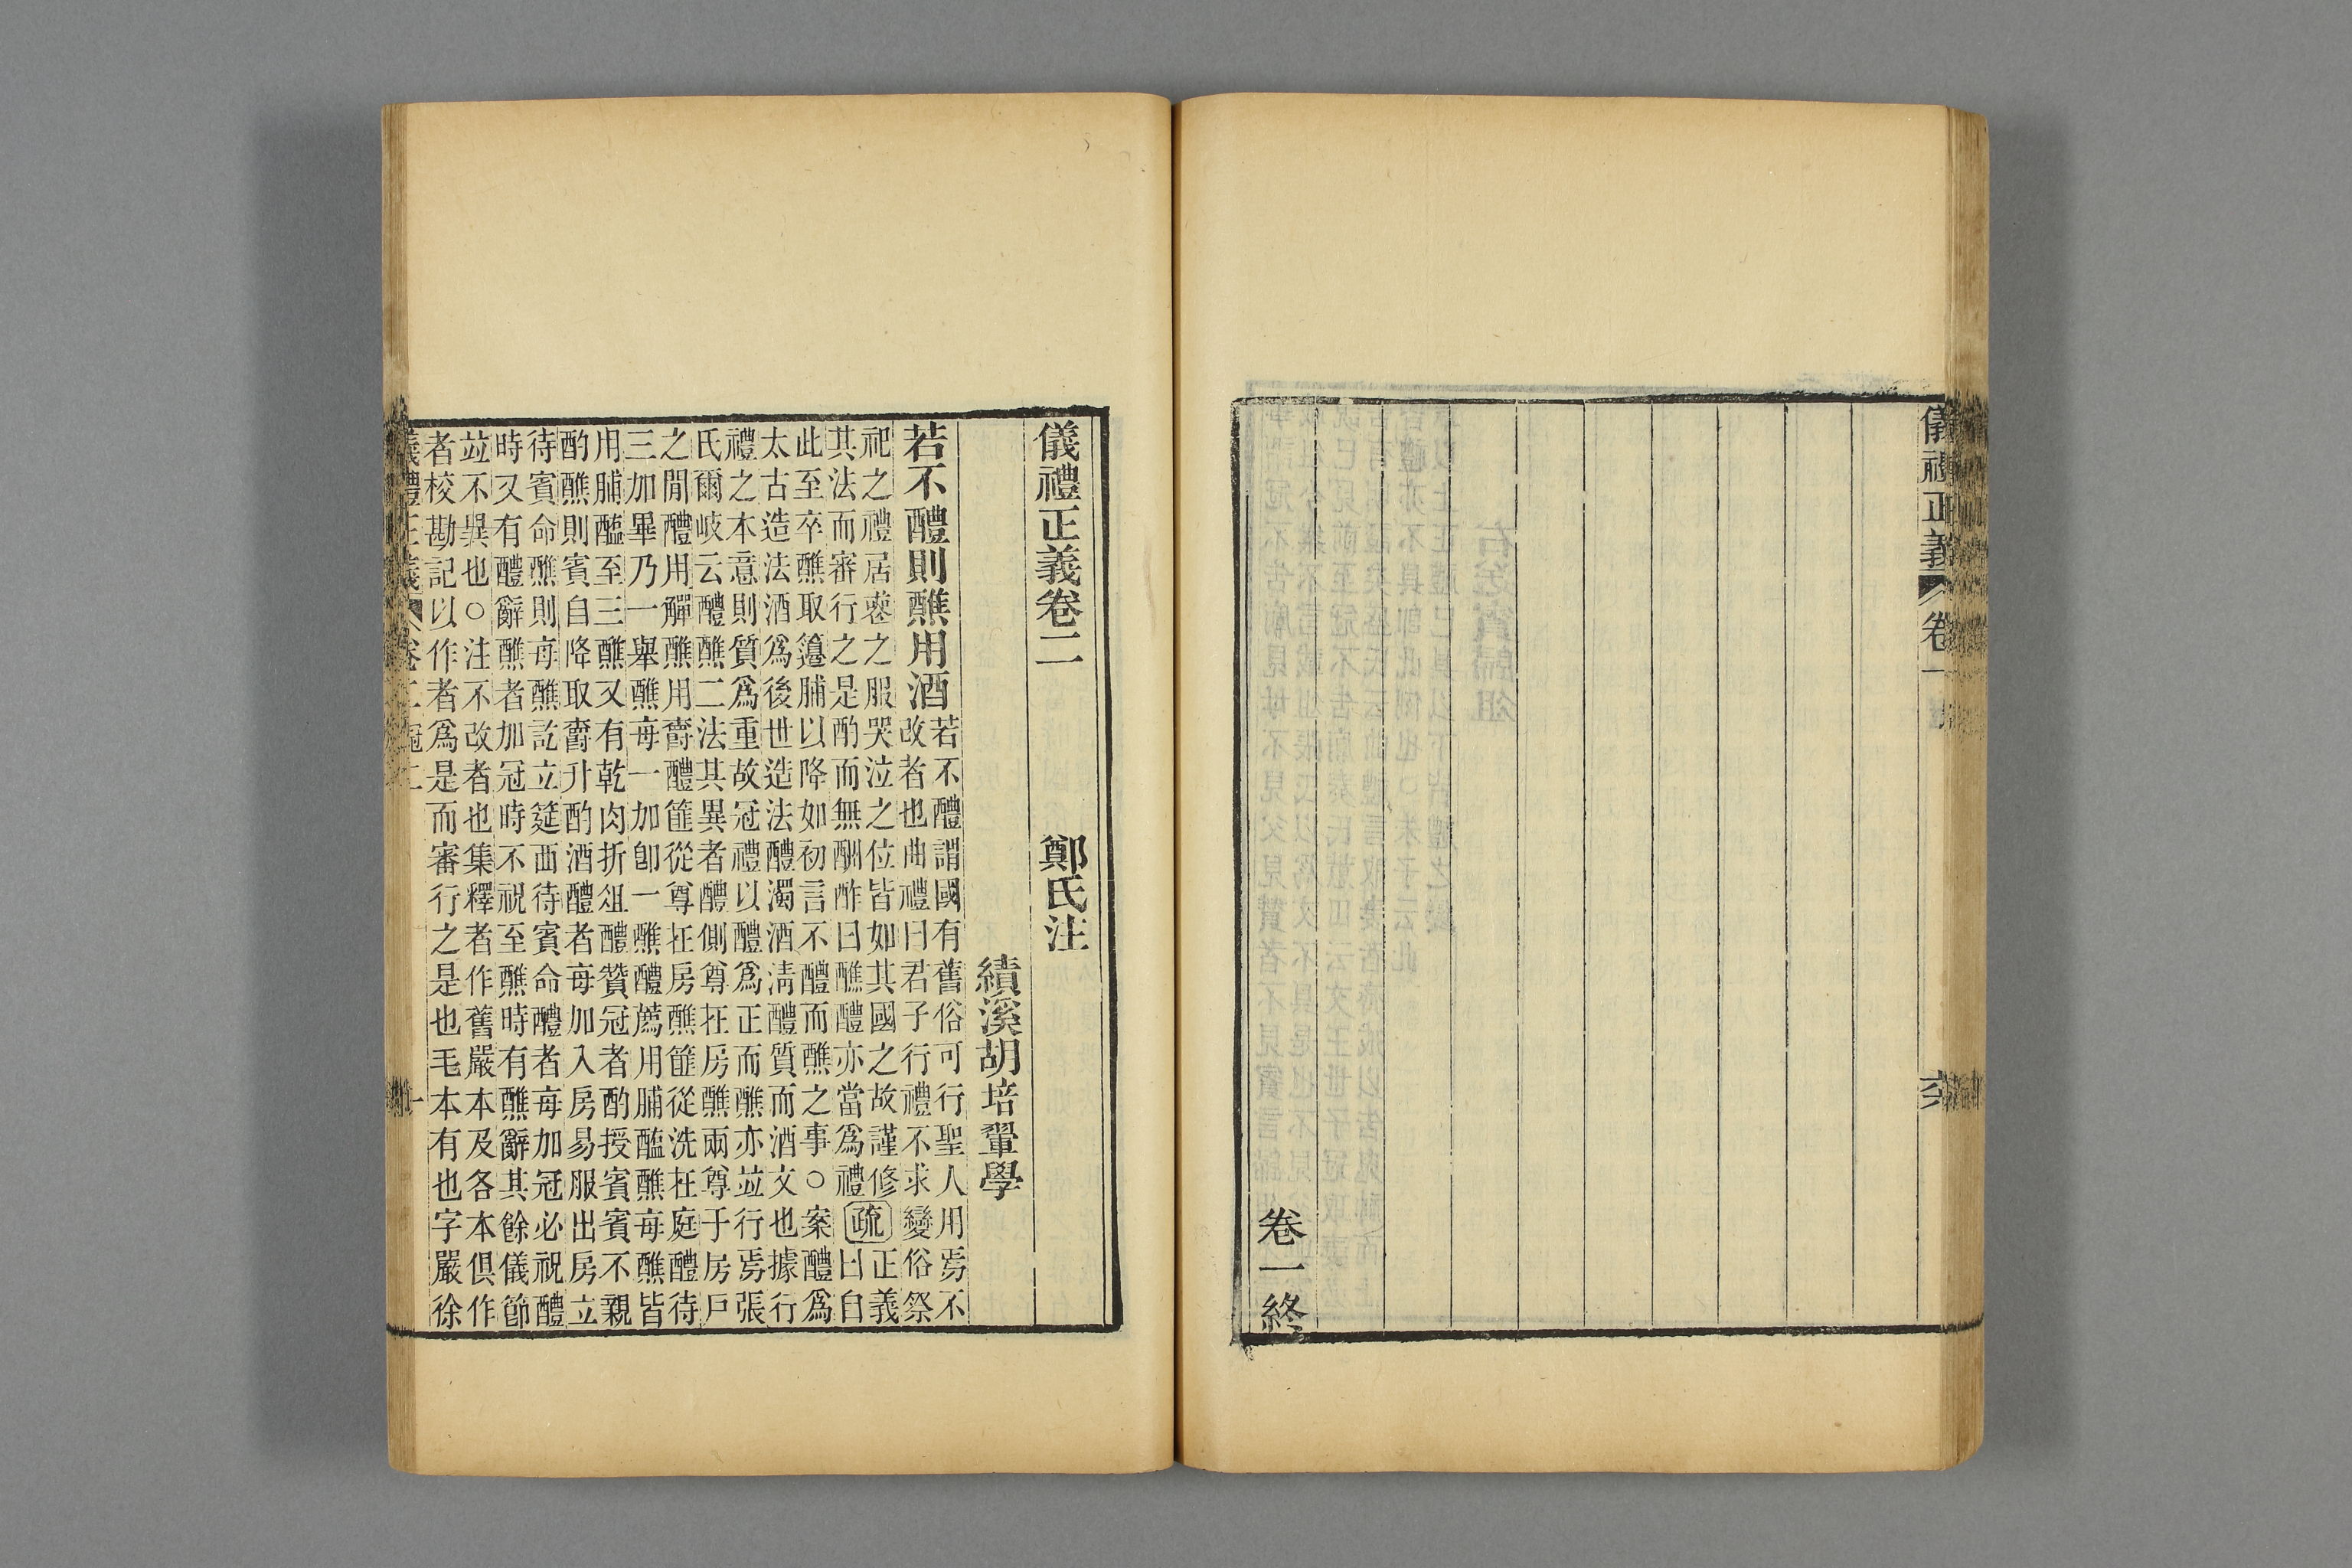 儀禮正義 卷一
卷一終
儀禮正義卷二 鄭氏注
績溪胡培翬學
若不醴則醮用酒
若不醴謂國有舊俗可行聖人用焉不
改者也曲禮曰君子行禮不求變俗祭
祀之禮居䘮之服哭泣之位皆如其國之故謹修
其法而審行之是酌而無酬酢曰醮醴亦當爲禮
疏
正義
曰自
此至卒醮取籩脯以降如初言不醴而醮之事○案醴爲
太古造法酒爲後世造法醴濁酒淸醴質而酒文也據行
禮之本意則質爲重故冠禮以醴爲正而醮亦竝行焉張
氏爾岐云醴醮二法其異者醴側尊在房醮兩尊于房戶
之閒醴用觶醮用爵醴篚從尊在房醮篚從洗在庭醴待
三加畢乃一舉醮每一加卽一醮醴薦用脯醢醮每醮皆
用脯醢至三醮又有乾肉折俎醴贊冠者酌授賓賓不親
酌醮則賓自降取爵升酌酒醴者每加入房易服出房立
待賓命醮則每醮訖立筵西待賓命醴者每加冠必祝醴
時又有醴辭醮者加冠時不祝至醮時有醮辭其餘儀節
竝不異也○注不改者也集釋者作舊嚴本及各本俱作
者校勘記以作者爲是而審行之是也毛本有也字嚴徐
儀禮正義 卷二